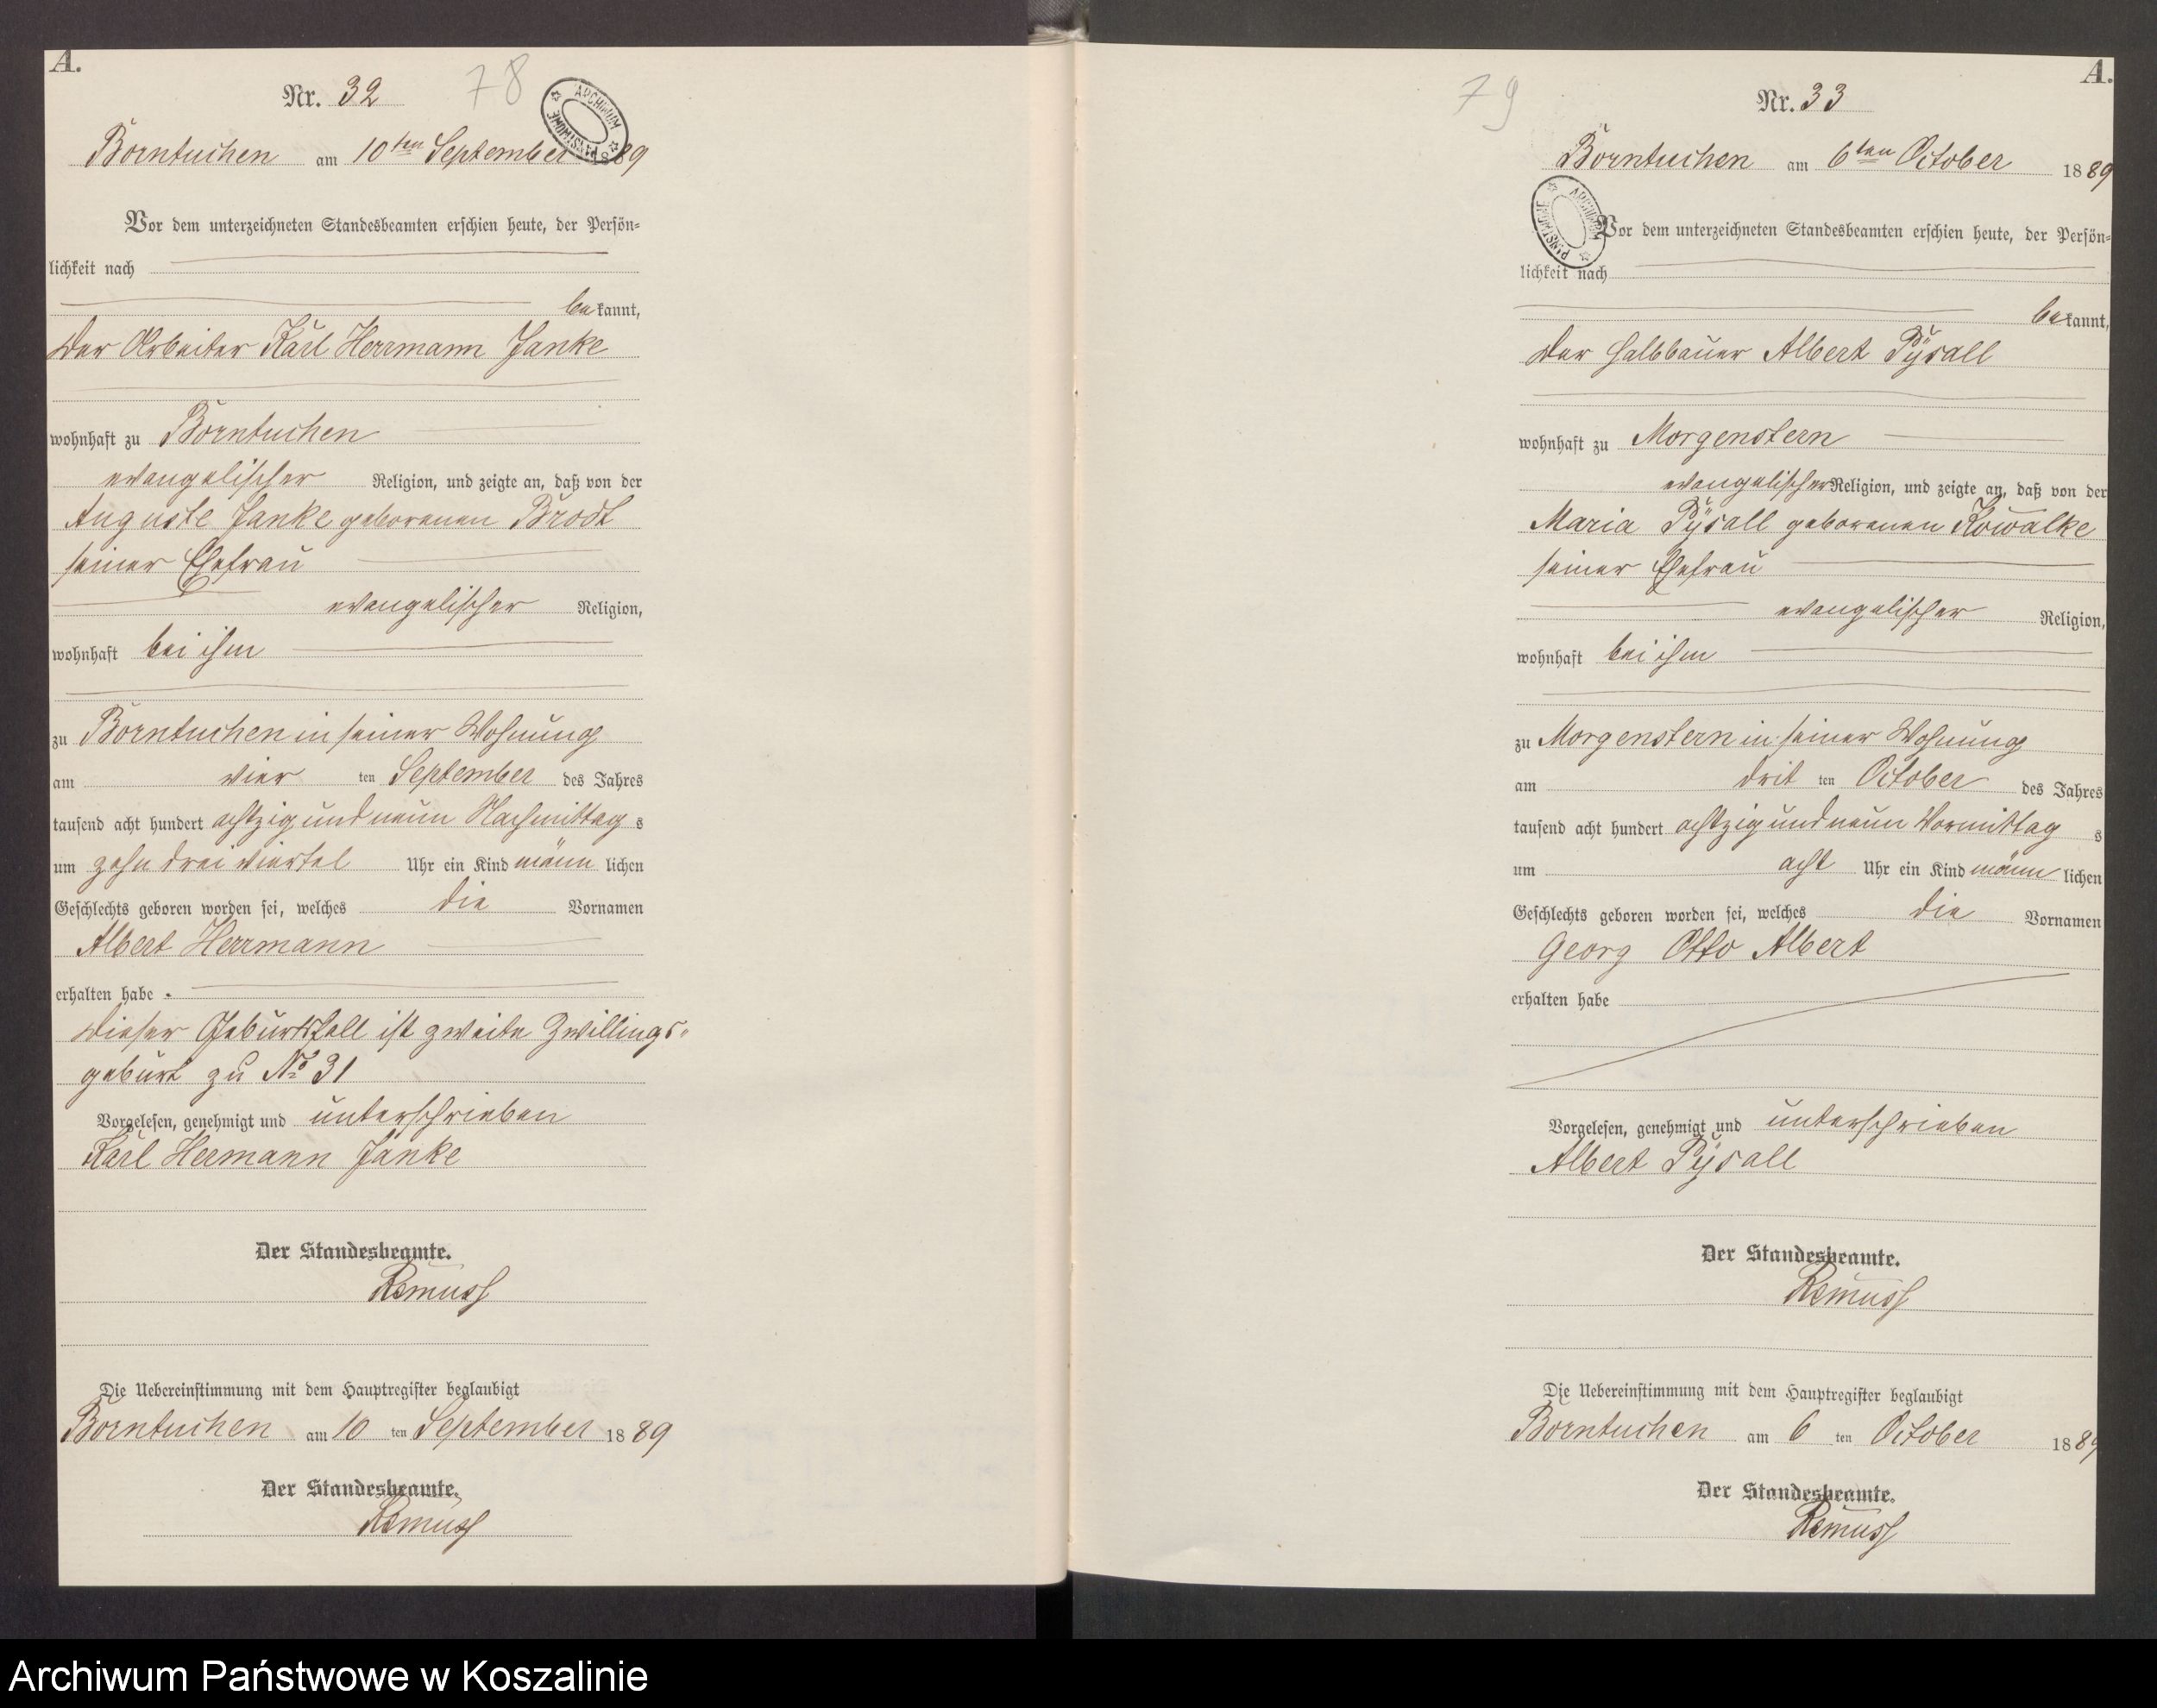 A.
Nr. 32
78
ARCHIWUM PAŃSTWOWE
Borntuchen am 10ten September 1889
Vor dem unterzeichneten Standesbeamten erschien heute, der Persön-
lichkeit nach
bekannt,
der Arbeiter Karl Herrmann Janke
wohnhaft zu Borntuchen
evangelischer Religion, und zeigte an, daß von der
Auguste Janke geborenen Brodt
seiner Ehefrau
evangelischer Religion,
wohnhaft bei ihm
zu Borntuchen in seiner Wohnung
am vier ten September des Jahres
tausend acht hundert achtzig und neun Nachmittag s
um zehn drei viertel Uhr ein Kind männ lichen
Geschlechts geboren worden sei, welches die Vornamen
Albert Herrmann
erhalten habe.
Dieser Geburtsfall ist zweite Zwillings-
geburt zu No 31
Vorgelesen, genehmigt und unterschrieben
Karl Hermann Janke
Der Standesbeamte.
Remuss
Die Uebereinstimmung mit dem Hauptregister beglaubigt
Borntuchen am 10 ten September 1889
Der Standesbeamte.
Remuss
A.
79
Nr. 33
Borntuchen am 6ten October 1889
ARCHIWUM PAŃSTWOWE
Vor dem unterzeichneten Standesbeamten erschien heute, der Persön-
lichkeit nach
bekannt,
der Halbbauer Albert Pÿsall
wohnhaft zu Morgenstern
evangelischer Religion, und zeigte an, daß von der
Maria Pÿsall geborenen Kowalke
seiner Ehefrau
evangelischer Religion,
wohnhaft bei ihm
zu Morgenstern in seiner Wohnung
am drit ten October des Jahres
tausend acht hundert achtzig und neun Vormittag s
um acht Uhr ein Kind männ lichen
Geschlechts geboren worden sei, welches die Vornamen
Georg Otto Albert
erhalten habe
Vorgelesen, genehmigt und unterschrieben
Albert Pÿsall
Der Standesbeamte.
Remuss
Die Uebereinstimmung mit dem Hauptregister beglaubigt
Borntuchen am 6 ten October 1889
Der Standesbeamte.
Remuss
Archiwum Państwowe w Koszalinie